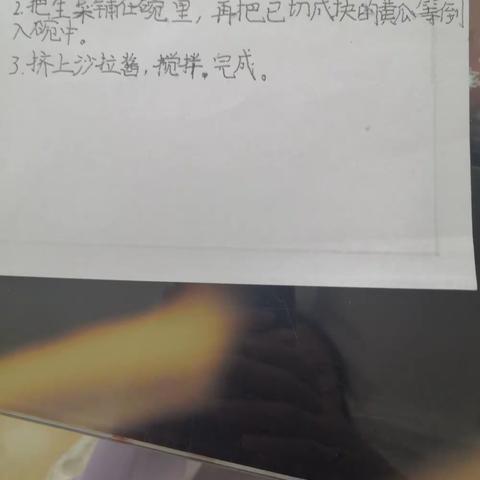 2.把生菜铺在碗里,再把已切成块的黄瓜等倒
入碗中。
3.挤上沙拉酱,搅拌。完成。